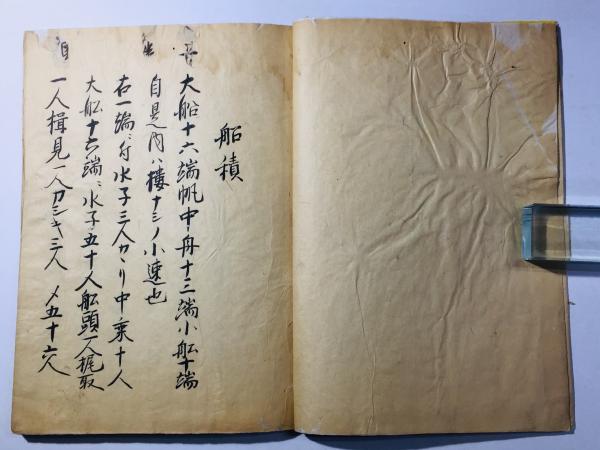 船積
大船十六端帆中舟十三端小船十端
自是内ハ櫓ナシノ小速也
右一端ニ付水子三人カヽリ中乗十人
大船十六端ニ水子五十人船頭一人梶取
一人楫見一人カシキ三人 〆五十六人